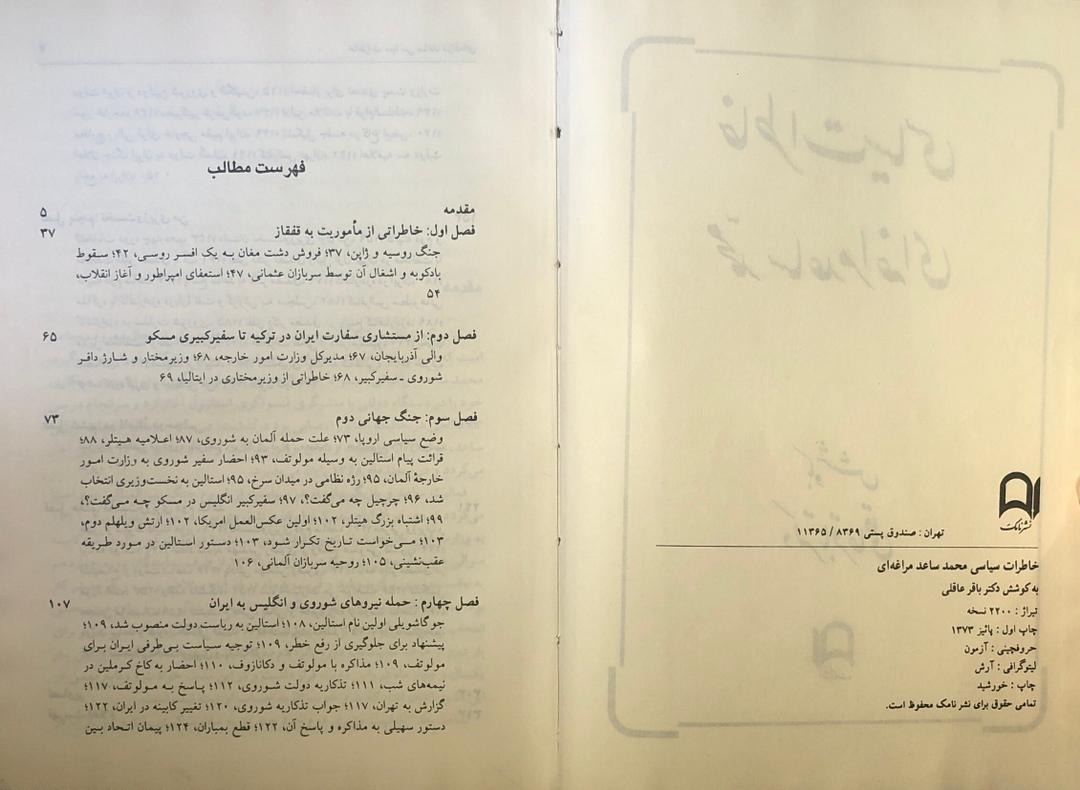 نشر نامک
تهران : صندوق پستی ۸۳۶۹ / ۱۱۳۶۵
خاطرات سیاسی محمد ساعد مراغه‌ای
به کوشش دکتر باقر عاقلی
تیراژ : ۲۲۰۰ نسخه
چاپ اول : پائیز ۱۳۷۳
حروفچینی : آزمون
لیتوگرافی : آرش
چاپ : خورشید
تمامی حقوق برای نشر نامک محفوظ است.
فهرست مطالب
مقدمه ۵
فصل اول: خاطراتی از مأموریت به قفقاز ۳۷
جنگ روسیه و ژاپن، ۳۷؛ فروش دشت مغان به یک افسر روسی، ۴۲؛ سقوط
بادکوبه و اشغال آن توسط سربازان عثمانی، ۴۷؛ استعفای امپراطور و آغاز انقلاب،
۵۴
فصل دوم: از مستشاری سفارت ایران در ترکیه تا سفیرکبیری مسکو ۶۵
والی آذربایجان، ۶۷؛ مدیرکل وزارت امور خارجه، ۶۸؛ وزیرمختار و شارژ دافر
شوروی ـ سفیرکبیر، ۶۸؛ خاطراتی از وزیرمختاری در ایتالیا، ۶۹
فصل سوم: جنگ جهانی دوم ۷۳
وضع سیاسی اروپا، ۷۳؛ علت حمله آلمان به شوروی، ۸۷؛ اعلامیه هیتلر، ۸۸؛
قرائت پیام استالین به وسیله مولوتف، ۹۳؛ احضار سفیر شوروی به وزارت امور
خارجهٔ آلمان، ۹۵؛ رژه نظامی در میدان سرخ، ۹۵؛ استالین به نخست‌وزیری انتخاب
شد، ۹۶؛ چرچیل چه می‌گفت؟، ۹۷؛ سفیرکبیر انگلیس در مسکو چه می‌گفت؟،
۹۹؛ اشتباه بزرگ هیتلر، ۱۰۲؛ اولین عکس‌العمل امریکا، ۱۰۲؛ ارتش ویلهلم دوم،
۱۰۳؛ می‌خواست تاریخ تکرار شود، ۱۰۳؛ دستور استالین در مورد طریقه
عقب‌نشینی، ۱۰۵؛ روحیه سربازان آلمانی، ۱۰۶
فصل چهارم: حمله نیروهای شوروی و انگلیس به ایران ۱۰۷
جوگاشویلی اولین نام استالین، ۱۰۸؛ استالین به ریاست دولت منصوب شد، ۱۰۹؛
پیشنهاد برای جلوگیری از رفع خطر، ۱۰۹؛ توجیه سیاست بی‌طرفی ایران برای
مولوتف، ۱۰۹؛ مذاکره با مولوتف و دکانازوف، ۱۱۰؛ احضار به کاخ کرملین در
نیمه‌های شب، ۱۱۱؛ تذکاریه دولت شوروی، ۱۱۲؛ پاسخ به مولوتف، ۱۱۷؛
گزارش به تهران، ۱۱۷؛ جواب تذکاریه شوروی، ۱۲۰؛ تغییر کابینه در ایران، ۱۲۲؛
دستور سهیلی به مذاکره و پاسخ آن، ۱۲۲؛ قطع بمباران، ۱۲۴؛ پیمان اتحاد بین